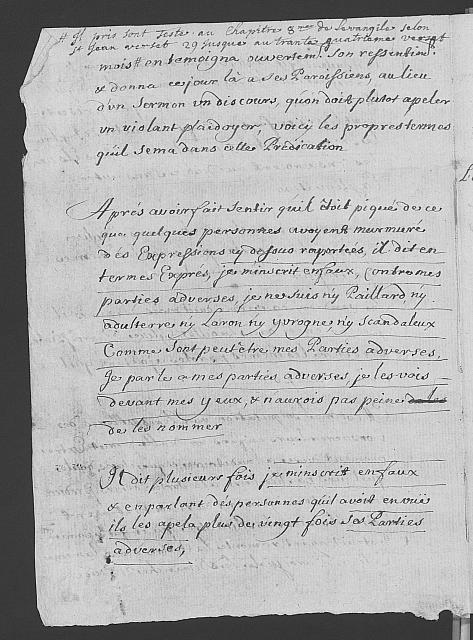 # Il pris sont Texte au Chapitre 8me de Levangile selon
st Jean verset 29 jusque au trante quatrieme verset
mois # en temoigna ouvertemt. son ressentimt.
& donna ce jour là a ses Paroissiens, au lieu
d'un Sermon un discours, qu'on doit plutot apeler
un violant plaidoyer, voicy les propres termes
qu'il sema dans cette Prédication
Aprés avoir fait sentir qu'il étoit piqué de ce
que quelques personnes avoyent murmuré
des Expressions cy dessus raportées, il dit en
termes Exprés, je m'inscrit en faux, contre mes
parties adverses, je ne suis n'y Paillard n'y
adulterre n'y Laron n'y yvrogne n'y scandaleux
Comme sont peut être mes Parties adverses,
Je parle a mes parties adverses, je les vois
devant mes yeux, & n'aurois pas peine
de les nommer
Il dit plusieurs fois je m'inscrit en faux
& en parlant des personnes qu'il avoit en vuë
ils les apela plus de vingt fois ses Parties
adverses,